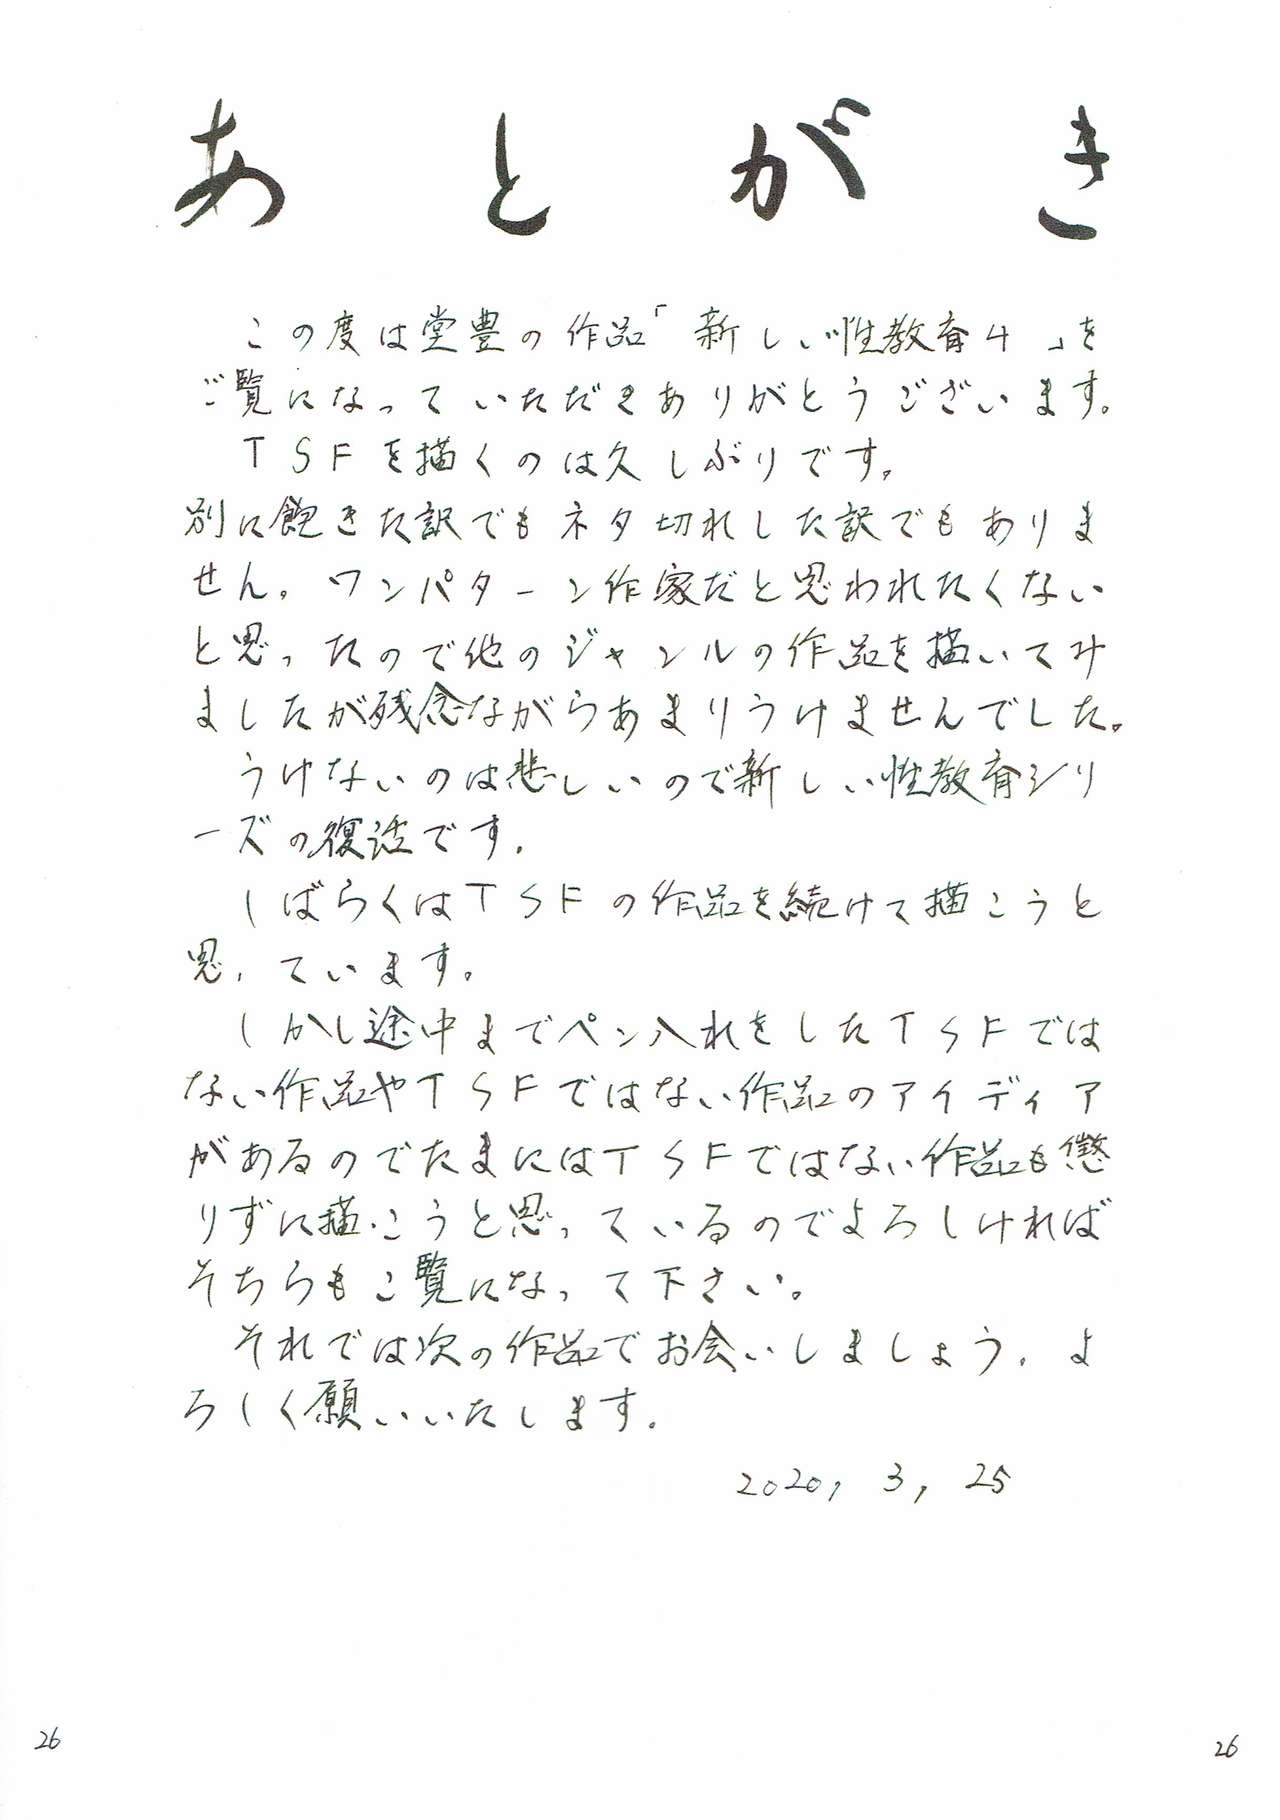 あとがき
この度は堂豊の作品「新しい性教育4」を
ご覧になっていただきありがとうございます。
TSFを描くのは久しぶりです。
別に飽きた訳でもネタ切れした訳でもありま
せん。ワンパターン作家だと思われたくない
と思ったので他のジャンルの作品を描いてみ
ましたが残念ながらあまりうけませんでした。
うけないのは悲しいので新しい性教育シリ
ーズの復活です。
しばらくはTSFの作品を続けて描こうと
思っています。
しかし途中までペン入れをしたTSFでは
ない作品やTSFではない作品のアイディア
があるのでたまにはTSFではない作品も懲
りずに描こうと思っているのでよろしければ
そちらもご覧になって下さい。
それでは次の作品でお会いしましょう。よ
ろしく願いいたします。
2020, 3, 25
26
26